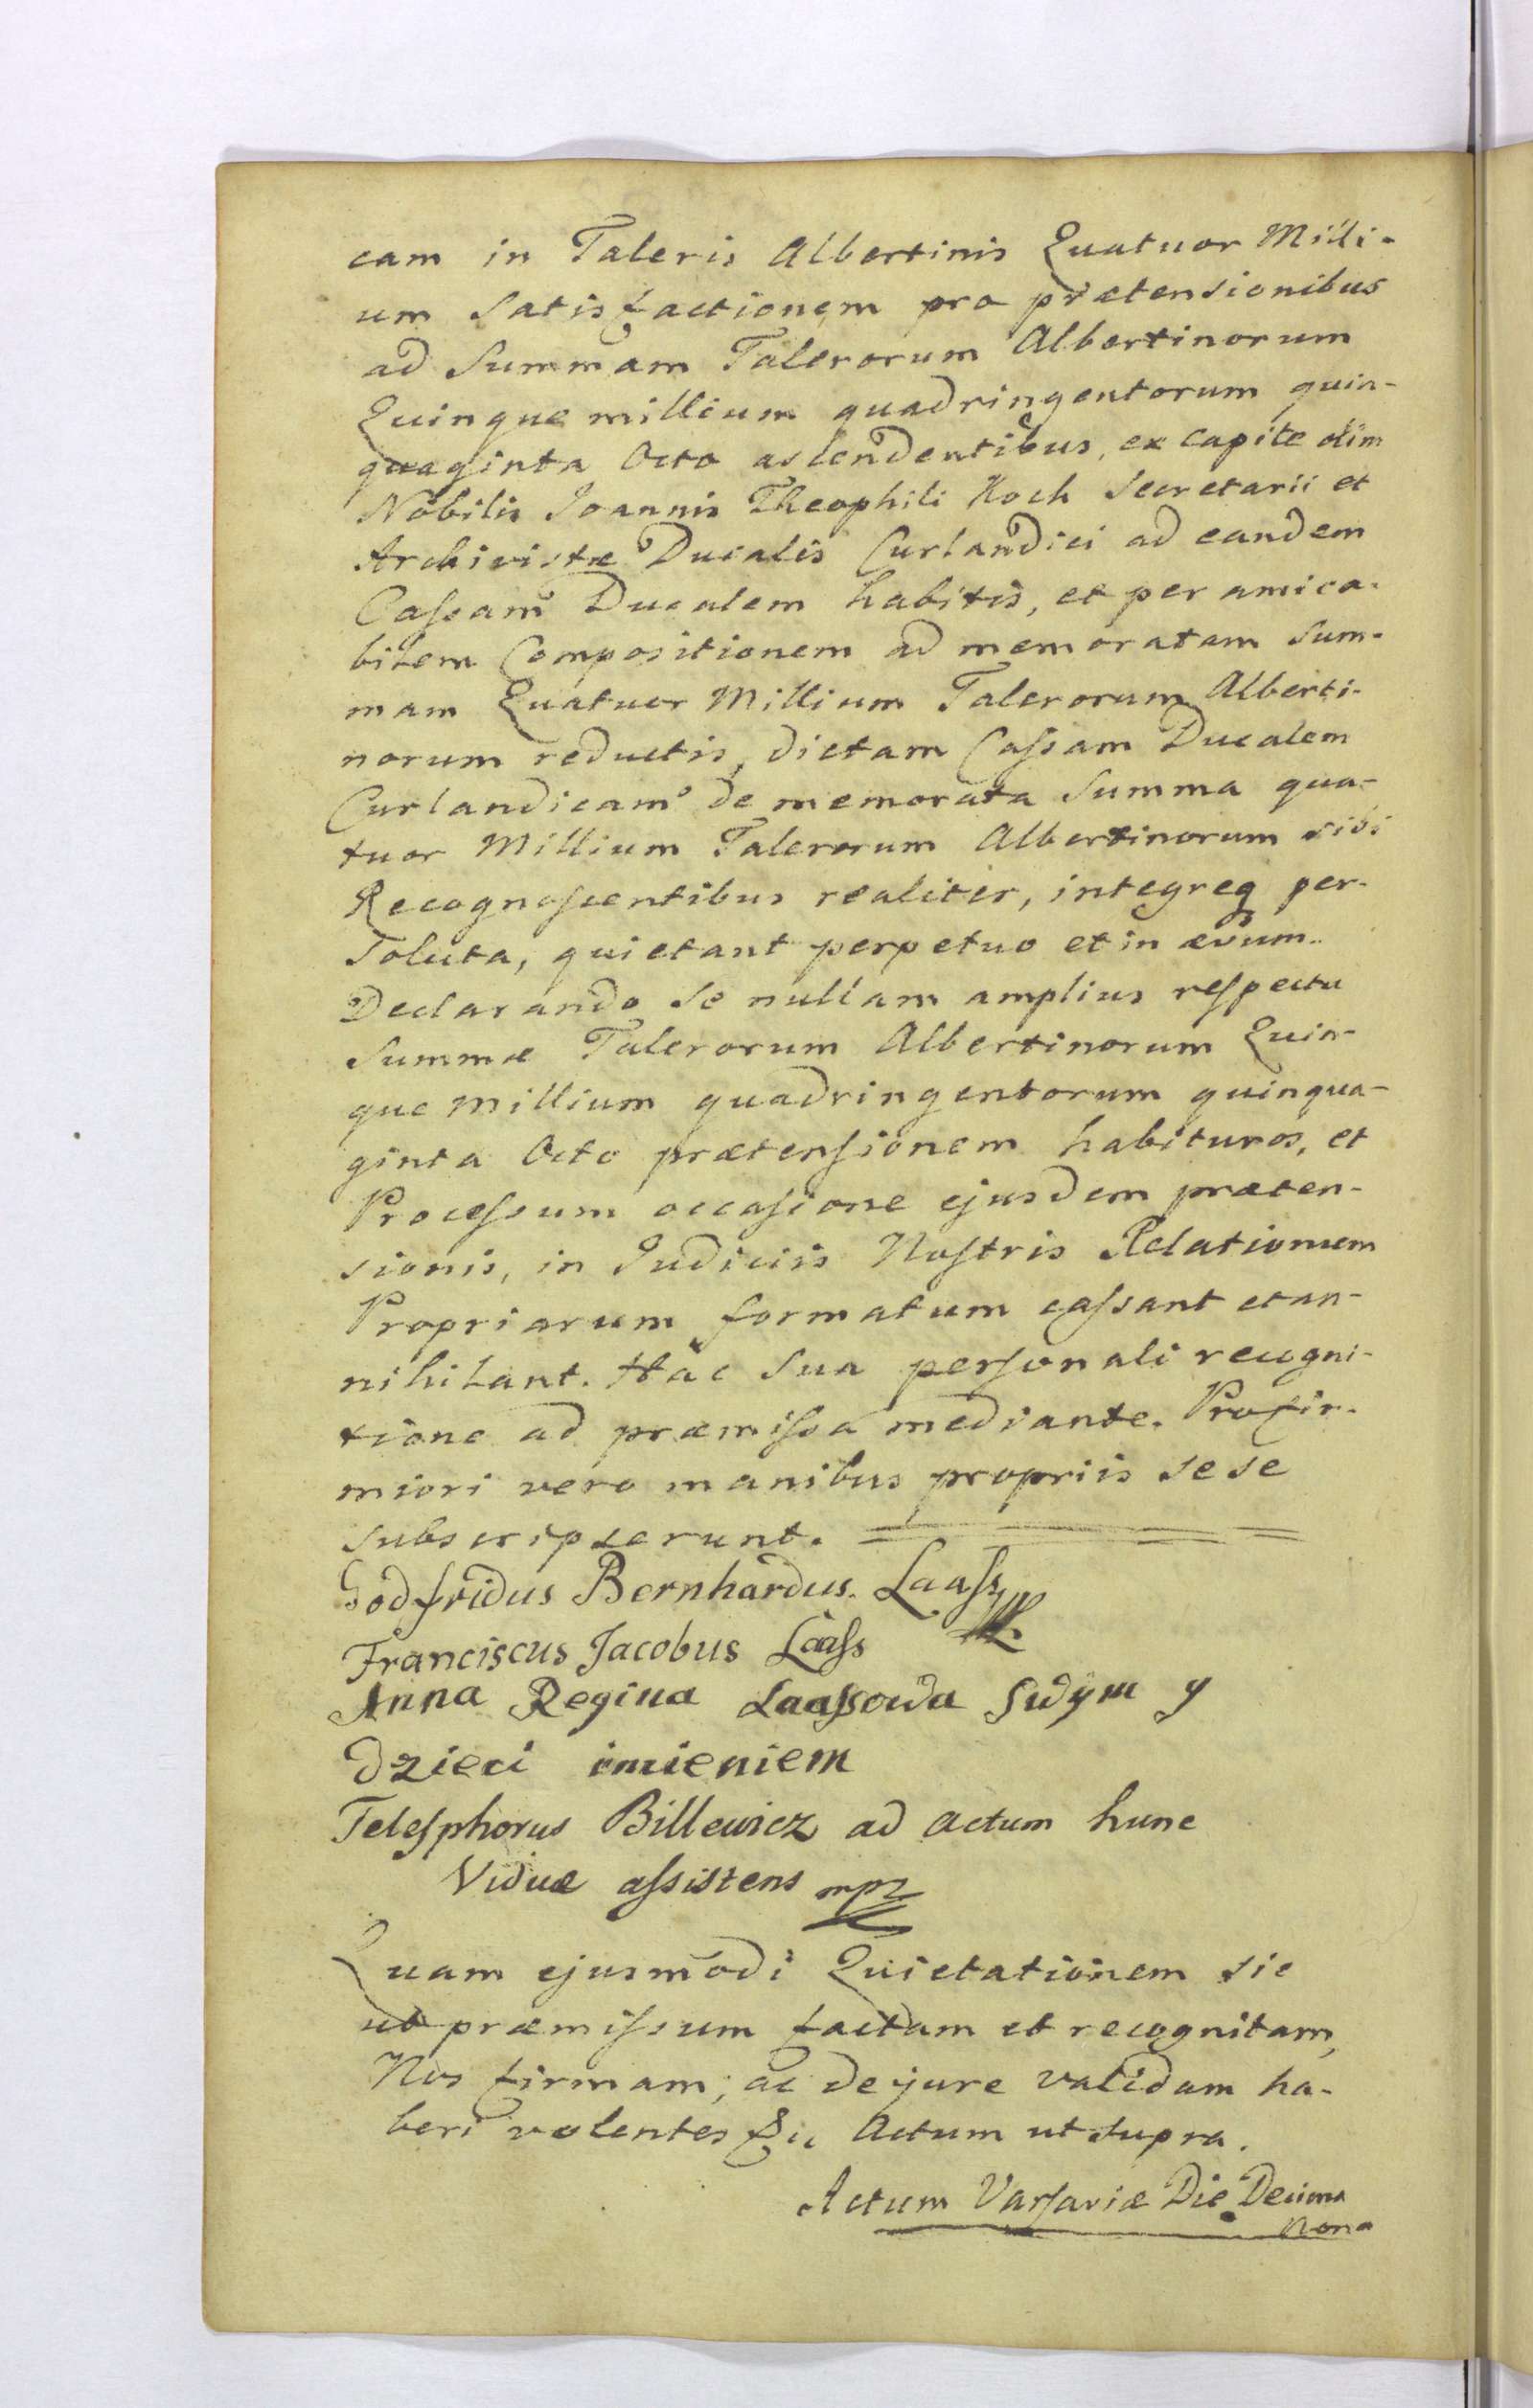 cam in Taleris Albertinis Quatuor Milli-
um satisfactionem pro prætensionibus
ad Summam Talerorum Albertinorum
Quinque millium quadringentorum quin-
quaginta Octo ascendentibus, ex capite olim
Nobilis Joannis Theophili Koch Secretarii et
Archivistæ Ducalis Curlandici ad eandem
Caſsam Ducalem habitis, et per amica-
bilem Compositionem ad memoratam Sum-
mam Quatuor Millium Talerorum Alberti-
norum reductis, dictam Caſsam Ducalem
Curlandicam de memorata Summa qua-
tuor Millium Talerorum Albertinorum sibi
Recognoſcentibus realiter, integreq per-
soluta, quietant perpetuo et in ævum.
Declarando se nullam amplius reſpectu
Summæ Talerorum Albertinorum Quin-
que millium quadringentorum quinqua-
ginta Octo prætenſionem habituros, et
Proceſsum occaſione ejusdem præten-
sionis, in Judiciis Noſtris Relationum
Propriarum formatum caſsant et an-
nihilant. Hac Sua perſonali recogni-
tione ad præmiſsa mediante. Pro fir-
miori vero manibus propriis sese
subscripserunt.
Godfridus Bernhardus. Laaſs
Franciscus Jacobus Laaſs
Anna Regina Laaſsowa Swÿm y
dzieci imieniem
Teleſphorus Billewicz ad actum hunc
Viduæ aſsistens mpr
Quam ejusmodi Quietationem sic
ut præmiſsum factam et recognitam,
Nos firmam, ac de jure validam ha-
beri volentes Actum ut Supra.
Actum Varſaviæ Die Decima
Nona